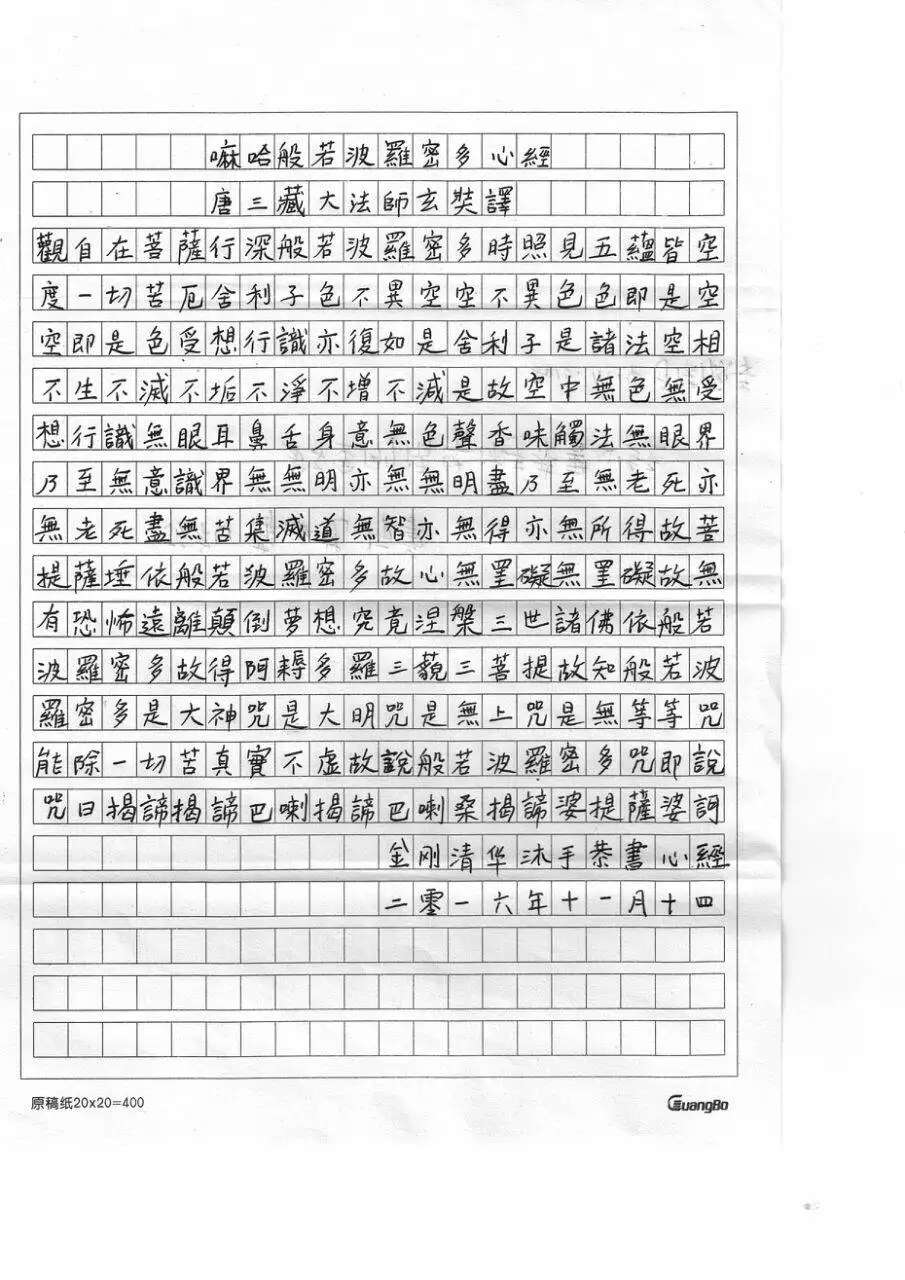 嘛哈般若波羅密多心經
唐三藏大法師玄奘譯
觀自在菩薩行深般若波羅密多時照見五蘊皆空
度一切苦厄舍利子色不異空空不異色色即是空
空即是色受想行識亦復如是舍利子是諸法空相
不生不滅不垢不淨不增不減是故空中無色無受
想行識無眼耳鼻舌身意無色聲香味觸法無眼界
乃至無意識界無無明亦無無明盡乃至無老死亦
無老死盡無苦集滅道無智亦無得亦無所得故菩
提薩埵依般若波羅密多故心無罣礙無罣礙故無
有恐怖遠離顛倒夢想究竟涅槃三世諸佛依般若
波羅密多故得阿耨多羅三藐三菩提故知般若波
羅密多是大神咒是大明咒是無上咒是無等等咒
能除一切苦真實不虛故說般若波羅密多咒即說
咒曰揭諦揭諦巴喇揭諦巴喇桑揭諦婆提薩婆訶
金刚清华沐手恭書心經
二零一六年十一月十四
原稿纸20x20=400
GuangBo